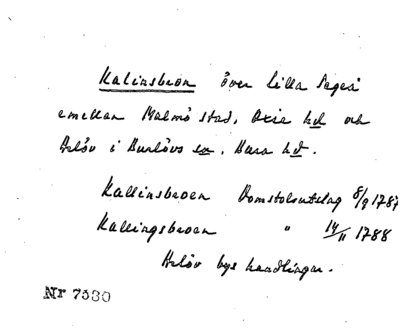 Kalinsbron över Lilla Segeå
emellan Malmö stad, Oxie hd och
Arlöv i Burlövs sn, Bara hd.
Kallinsbroen Domstolsutslag 8/9 1787
Kallingsbroen " 14/11 1788
Arlöv bys handlingar.
Nr 7530